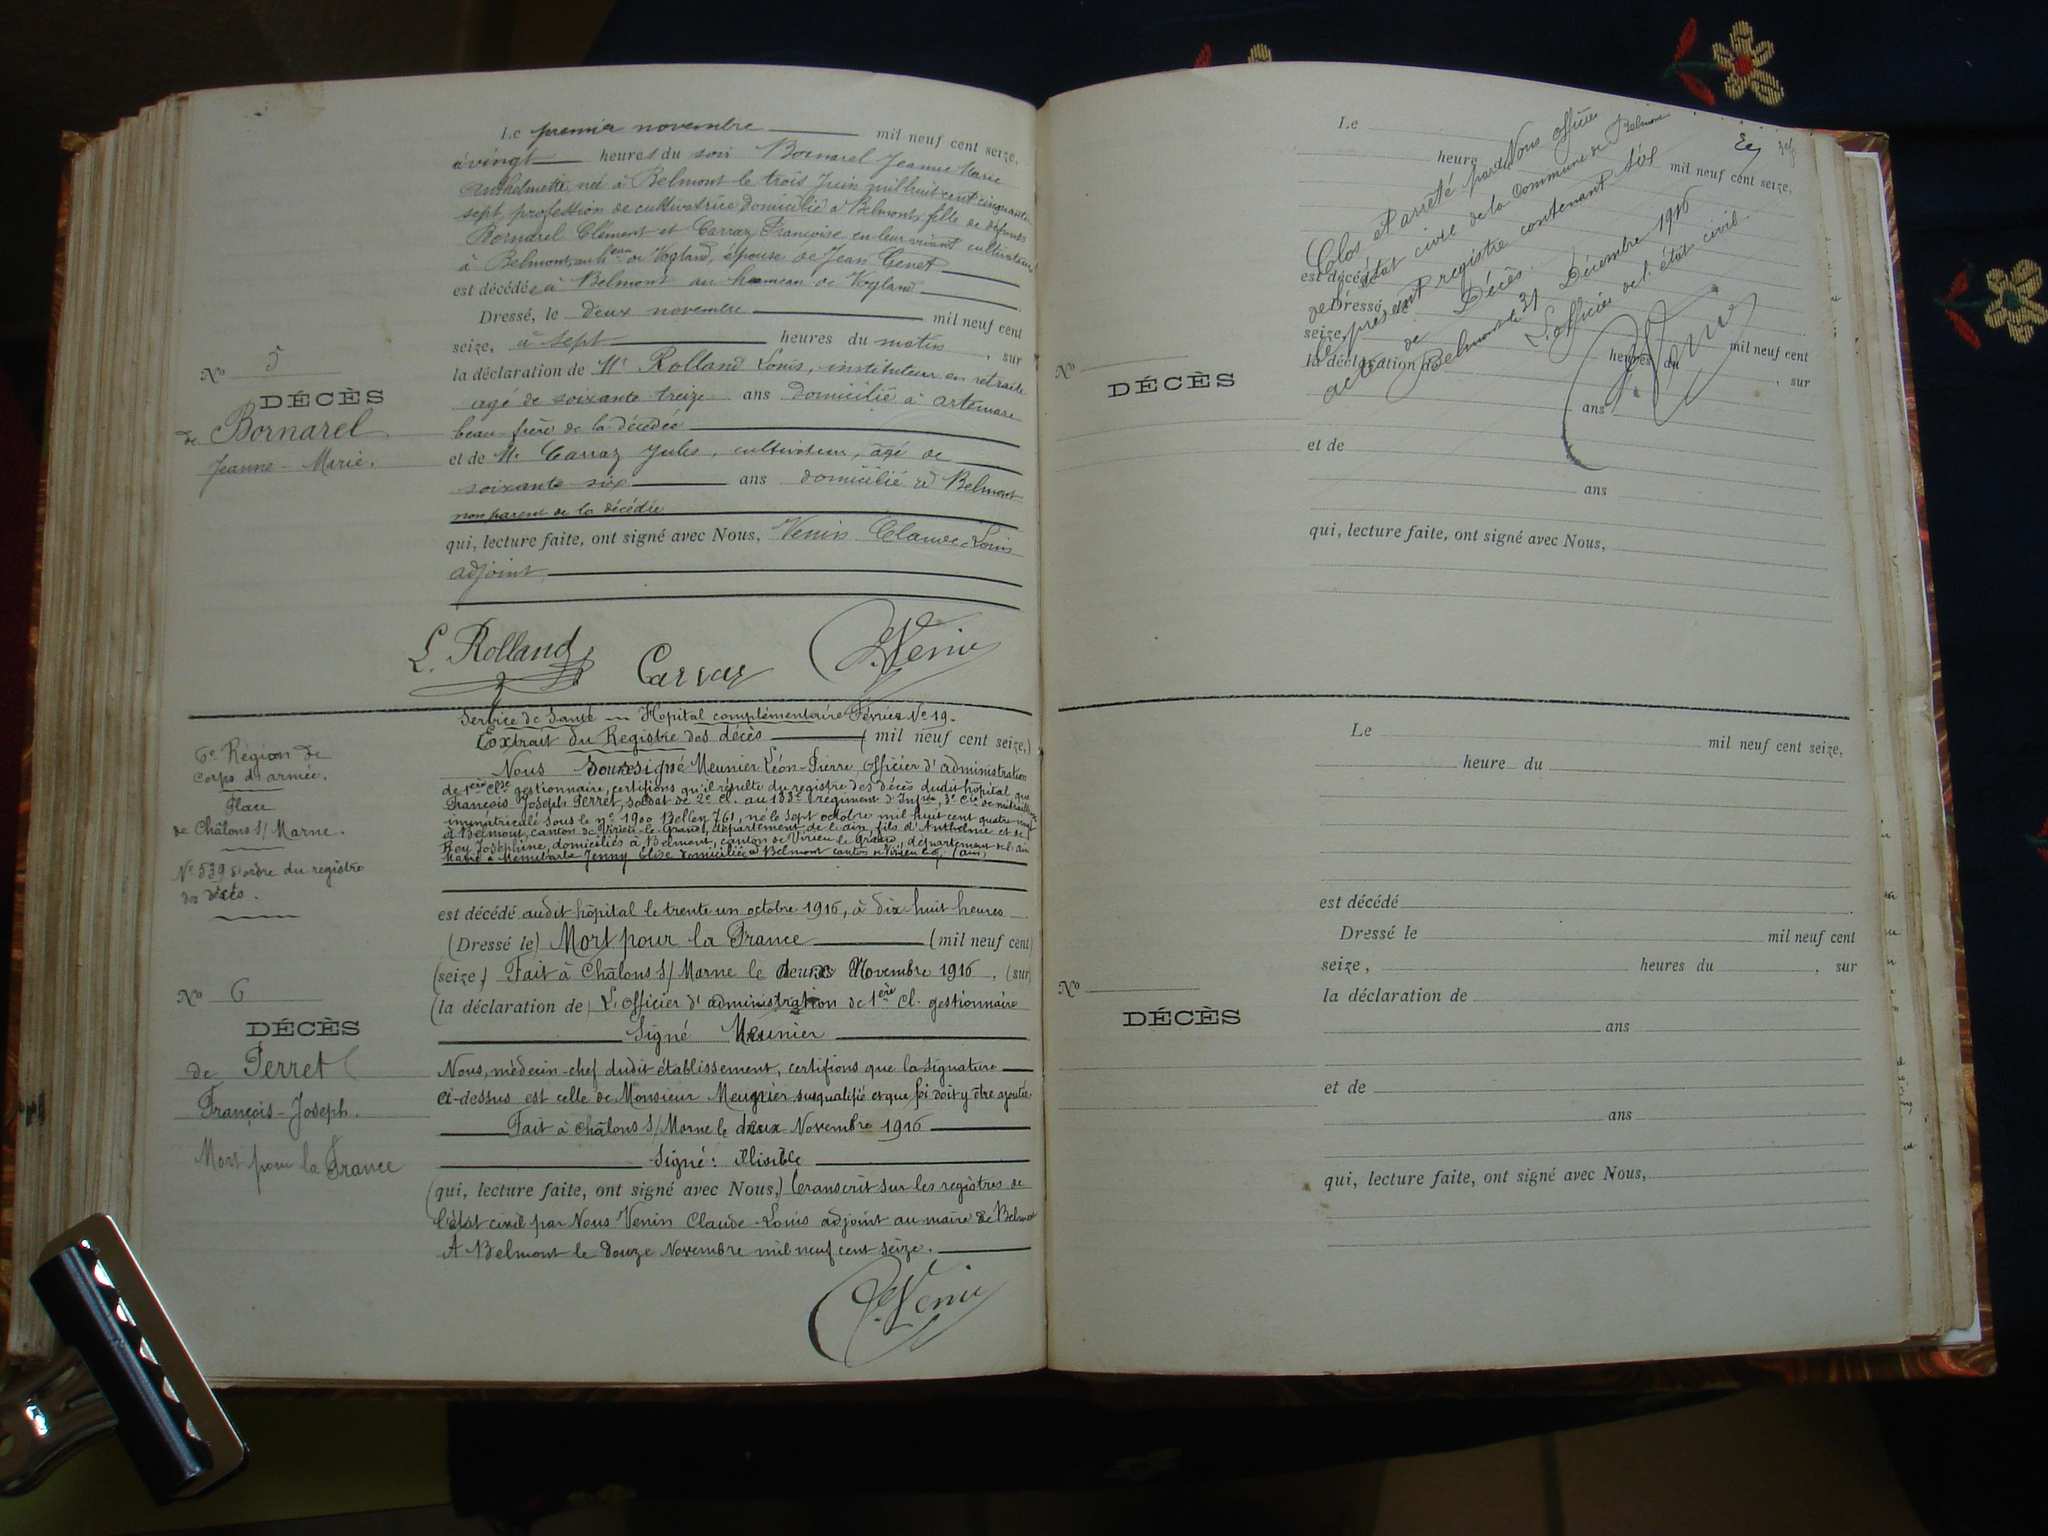 Le premier novembre mil neuf cent seize,
à vingt heures du soir Bornarel Jeanne Marie
Anthelmette, née à Belmont le trois Juin mil huit cent cinquante
sept, profession de cultivatrice domiciliée à Belmont, fille de défunts
Bornarel Clément et Carraz Françoise en leur vivant cultivateurs
à Belmont, au heau de Vogland, épouse de Jean Genet
est décédée à Belmont au hameau de Vogland
Dressé, le deux novembre mil neuf cent
seize, à sept heures du matin, sur
la déclaration de Mr Rolland Louis, instituteur en retraite
age de soixante treize ans domicilié à artemare
beau-frère de la décédée
et de Mr Carraz Jules, cultivateur, agé de
soixante six ans domicilié à Belmont
non parent de la décédée
qui, lecture faite, ont signé avec Nous, Venin Claude-Louis
adjoint
No 5
DÉCÈS
de Bornarel
Jeanne-Marie.
L. Rolland Carraz Venin
6e Région de
Corps d'armée.
Place
de Châlons s/ Marne.
No 539 d'ordre du registre
des décès.
No 6
DÉCÈS
de Perret
François-Joseph.
Mort pour la France
Service de Santé — Hopital complémentaire Février No 19.
Extrait du Registre des décès (mil neuf cent seize,)
Nous soussigné Meunier Léon-Pierre, officier d'administration
de 1ère Clse gestionnaire, certifions qu'il résulte du registre des décès dudit hôpital que
François Joseph Perret, soldat de 2e cl. au 133e régiment d'Infrie, 3e Cie de mitrailleuses
immatriculé sous le no 1900 Belley 761, né le sept octobre mil huit cent quatre-vingt
à Belmont, canton de Virieu-le-Grand, département de l'ain, fils d'Anthelme et de
Rey Joséphine, domiciliés à Belmont, canton de Virieu le Grand, département de l'ain
Marié à Jenny Elise domiciliée à Belmont canton de Virieu le G. (ain)
est décédé audit hôpital le trente un octobre 1916, à dix huit heures
(Dressé le) Mort pour la France (mil neuf cent)
(seize,) Fait à Châlons s/ Marne le deux Novembre 1916, (sur)
(la déclaration de) L'Officier d'administration de 1ère cl. gestionnaire
Signé Meunier
Nous, médecin-chef dudit établissement, certifions que la signature
ci-dessus est celle de Monsieur Meunier susqualifié et que foi doit y être ajoutée.
Fait à Châlons s/ Marne le deux Novembre 1916
Signé: illisible
(qui, lecture faite, ont signé avec Nous,) transcrit sur les registres de
l'état civil par Nous Venin Claude-Louis adjoint au maire de Belmont
A Belmont le douze Novembre mil neuf cent seize.
Venin
Le mil neuf cent seize,
heure du
est décédé
Dressé le mil neuf cent
seize, heures du , sur
la déclaration de
ans
et de
ans
qui, lecture faite, ont signé avec Nous,
No
DÉCÈS
Clos et arrêté par Nous officier
de l'état civil de la Commune de Belmont
le présent registre contenant six
actes de Décès.
Belmont le 31 Décembre 1916
L'officier de l'état civil
Venin
Le mil neuf cent seize,
heure du
est décédé
Dressé le mil neuf cent
seize, heures du , sur
la déclaration de
ans
et de
ans
qui, lecture faite, ont signé avec Nous,
No
DÉCÈS